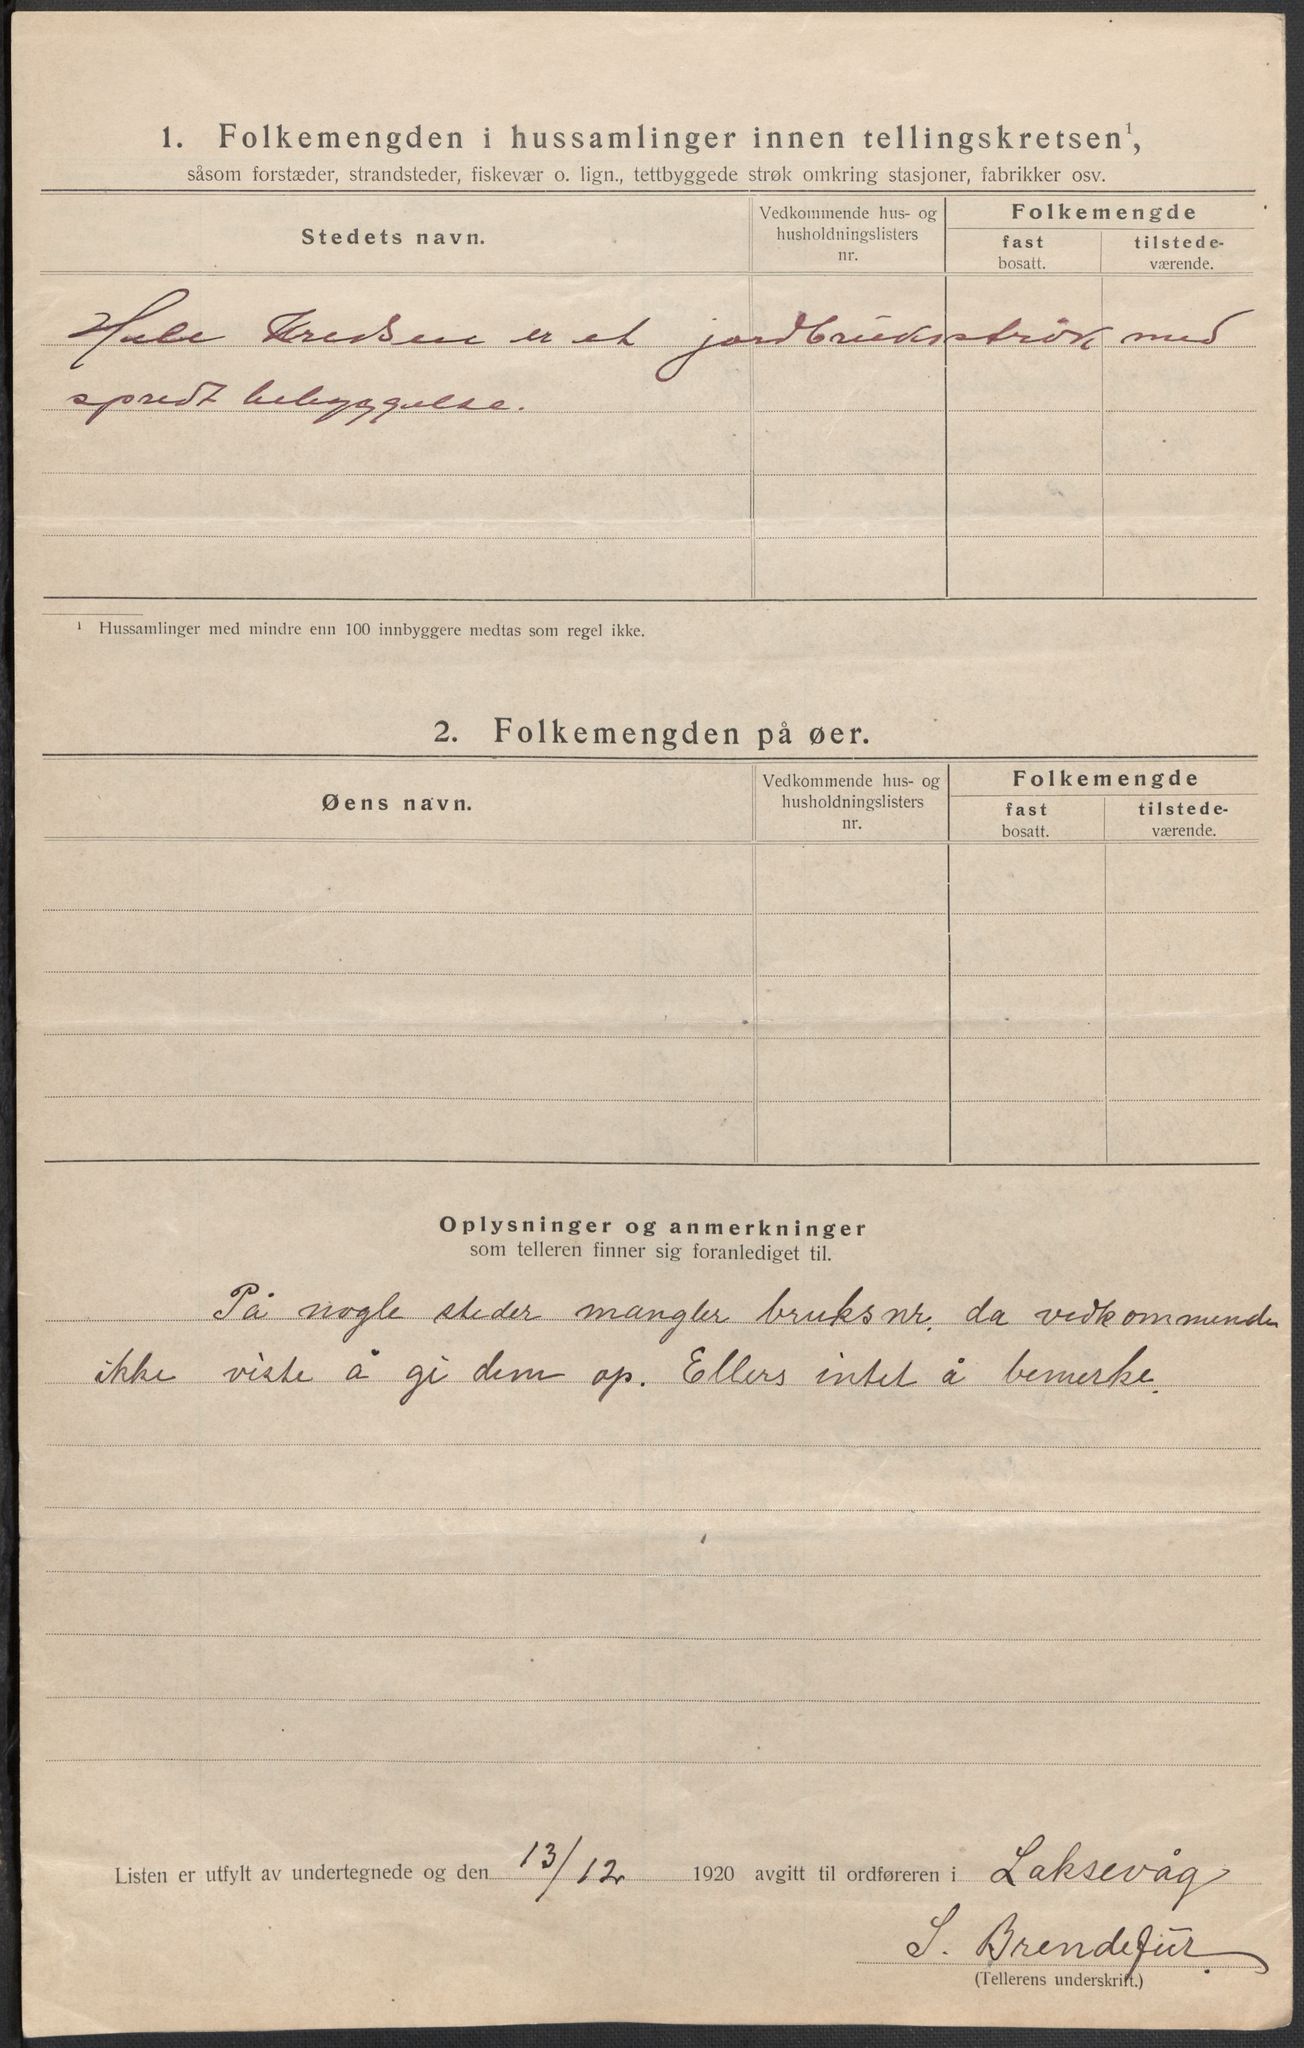 1. Folkemengden i hussamlinger innen tellingskretsen¹,
såsom forstæder, strandsteder, fiskevær o. lign., tettbyggede strøk omkring stasjoner, fabrikker osv.
Stedets navn.
Vedkommende hus- og
husholdningslisters
nr.
Folkemengde
fast
bosatt.
tilstede-
værende.
Hele Kredsen er et jordbruksstrøk med
spredt bebyggelse.
¹ Hussamlinger med mindre enn 100 innbyggere medtas som regel ikke.
2. Folkemengden på øer.
Øens navn.
Vedkommende hus- og
husholdningslisters
nr.
Folkemengde
fast
bosatt.
tilstede-
værende.
Oplysninger og anmerkninger
som telleren finner sig foranlediget til.
På nogle steder mangler bruksnr. da vedkommende
ikke viste å gi dem op. Ellers intet å bemerke.
Listen er utfylt av undertegnede og den 13/12 1920 avgitt til ordføreren i Laksevåg
S. Brendefur.
(Tellerens underskrift.)